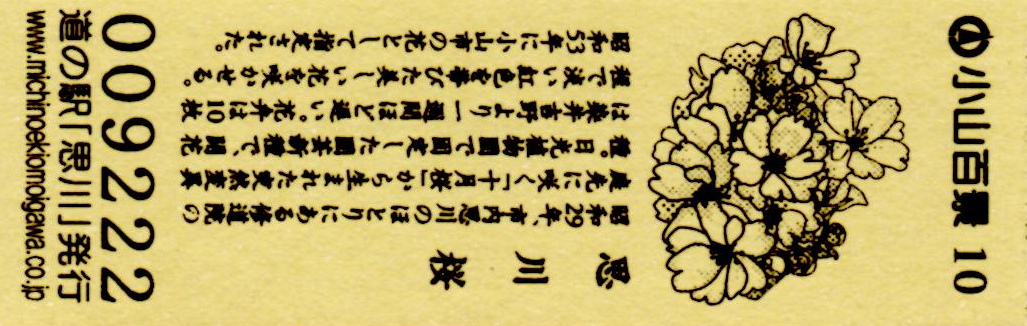 小山百景 10
思川桜
昭和29年、市内思川のほとりにある修道院の
庭先に咲く「十月桜」から生まれた突然変異
種。日光植物園で固定した園芸新種で、開花
は染井吉野より一週間ほど遅い。花弁は10枚
程で淡い紅色を帯びた美しい花を咲かせる。
昭和53年に小山市の花として指定された。
009222
道の駅「思川」発行
www.michinoekiomoigawa.co.jp